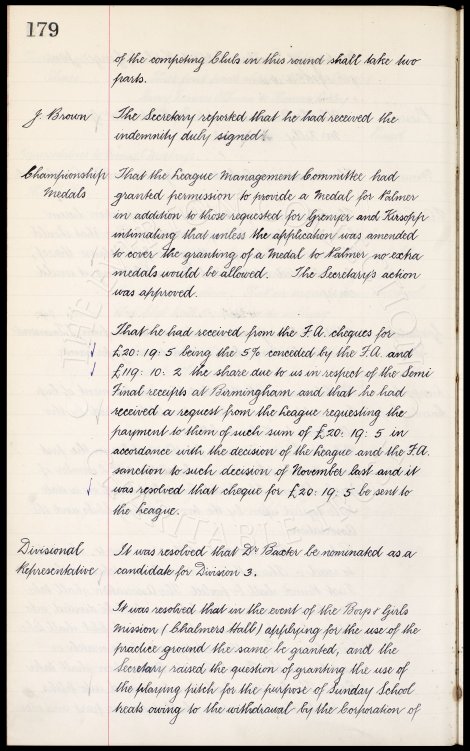 179
of the competing Clubs in this round shall take two
parts.
J. Brown
The Secretary reported that he had received the
indemnity duly signed.
Championship
Medals
That the League Management Committee had
granted permission to provide a Medal for Palmer
in addition to those requested for Grenyer and Kirsopp
intimating that unless the application was amended
to cover the granting of a Medal to Palmer no extra
medals would be allowed. The Secretary's action
was approved.
That he had received from the F.A. cheques for
£20: 19: 5 being the 5% conceded by the F.A. and
£119: 10: 2 the share due to us in respect of the Semi
Final receipts at Birmingham and that he had
received a request from the League requesting the
payment to them of such sum of £20: 19: 5 in
accordance with the decision of the League and the F.A.
sanction to such decision of November last and it
was resolved that cheque for £20: 19: 5 be sent to
the League.
Divisional
Representative
It was resolved that Dr Baxter be nominated as a
candidate for Division 3.
It was resolved that in the event of the Boys & Girls
Mission (Chalmers Hall) applying for the use of the
practice ground the same be granted, and the
Secretary raised the question of granting the use of
the playing pitch for the purpose of Sunday School
treats owing to the withdrawal by the Corporation of